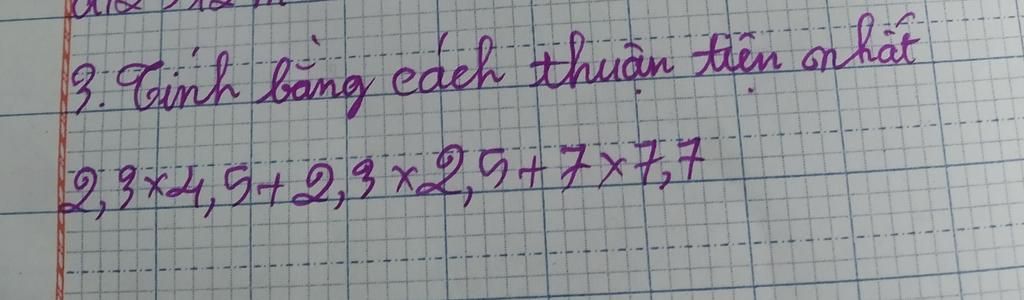 3. Tính bằng cách thuận tiện nhất
2,3 × 4,5 + 2,3 × 2,5 + 7 × 7,7